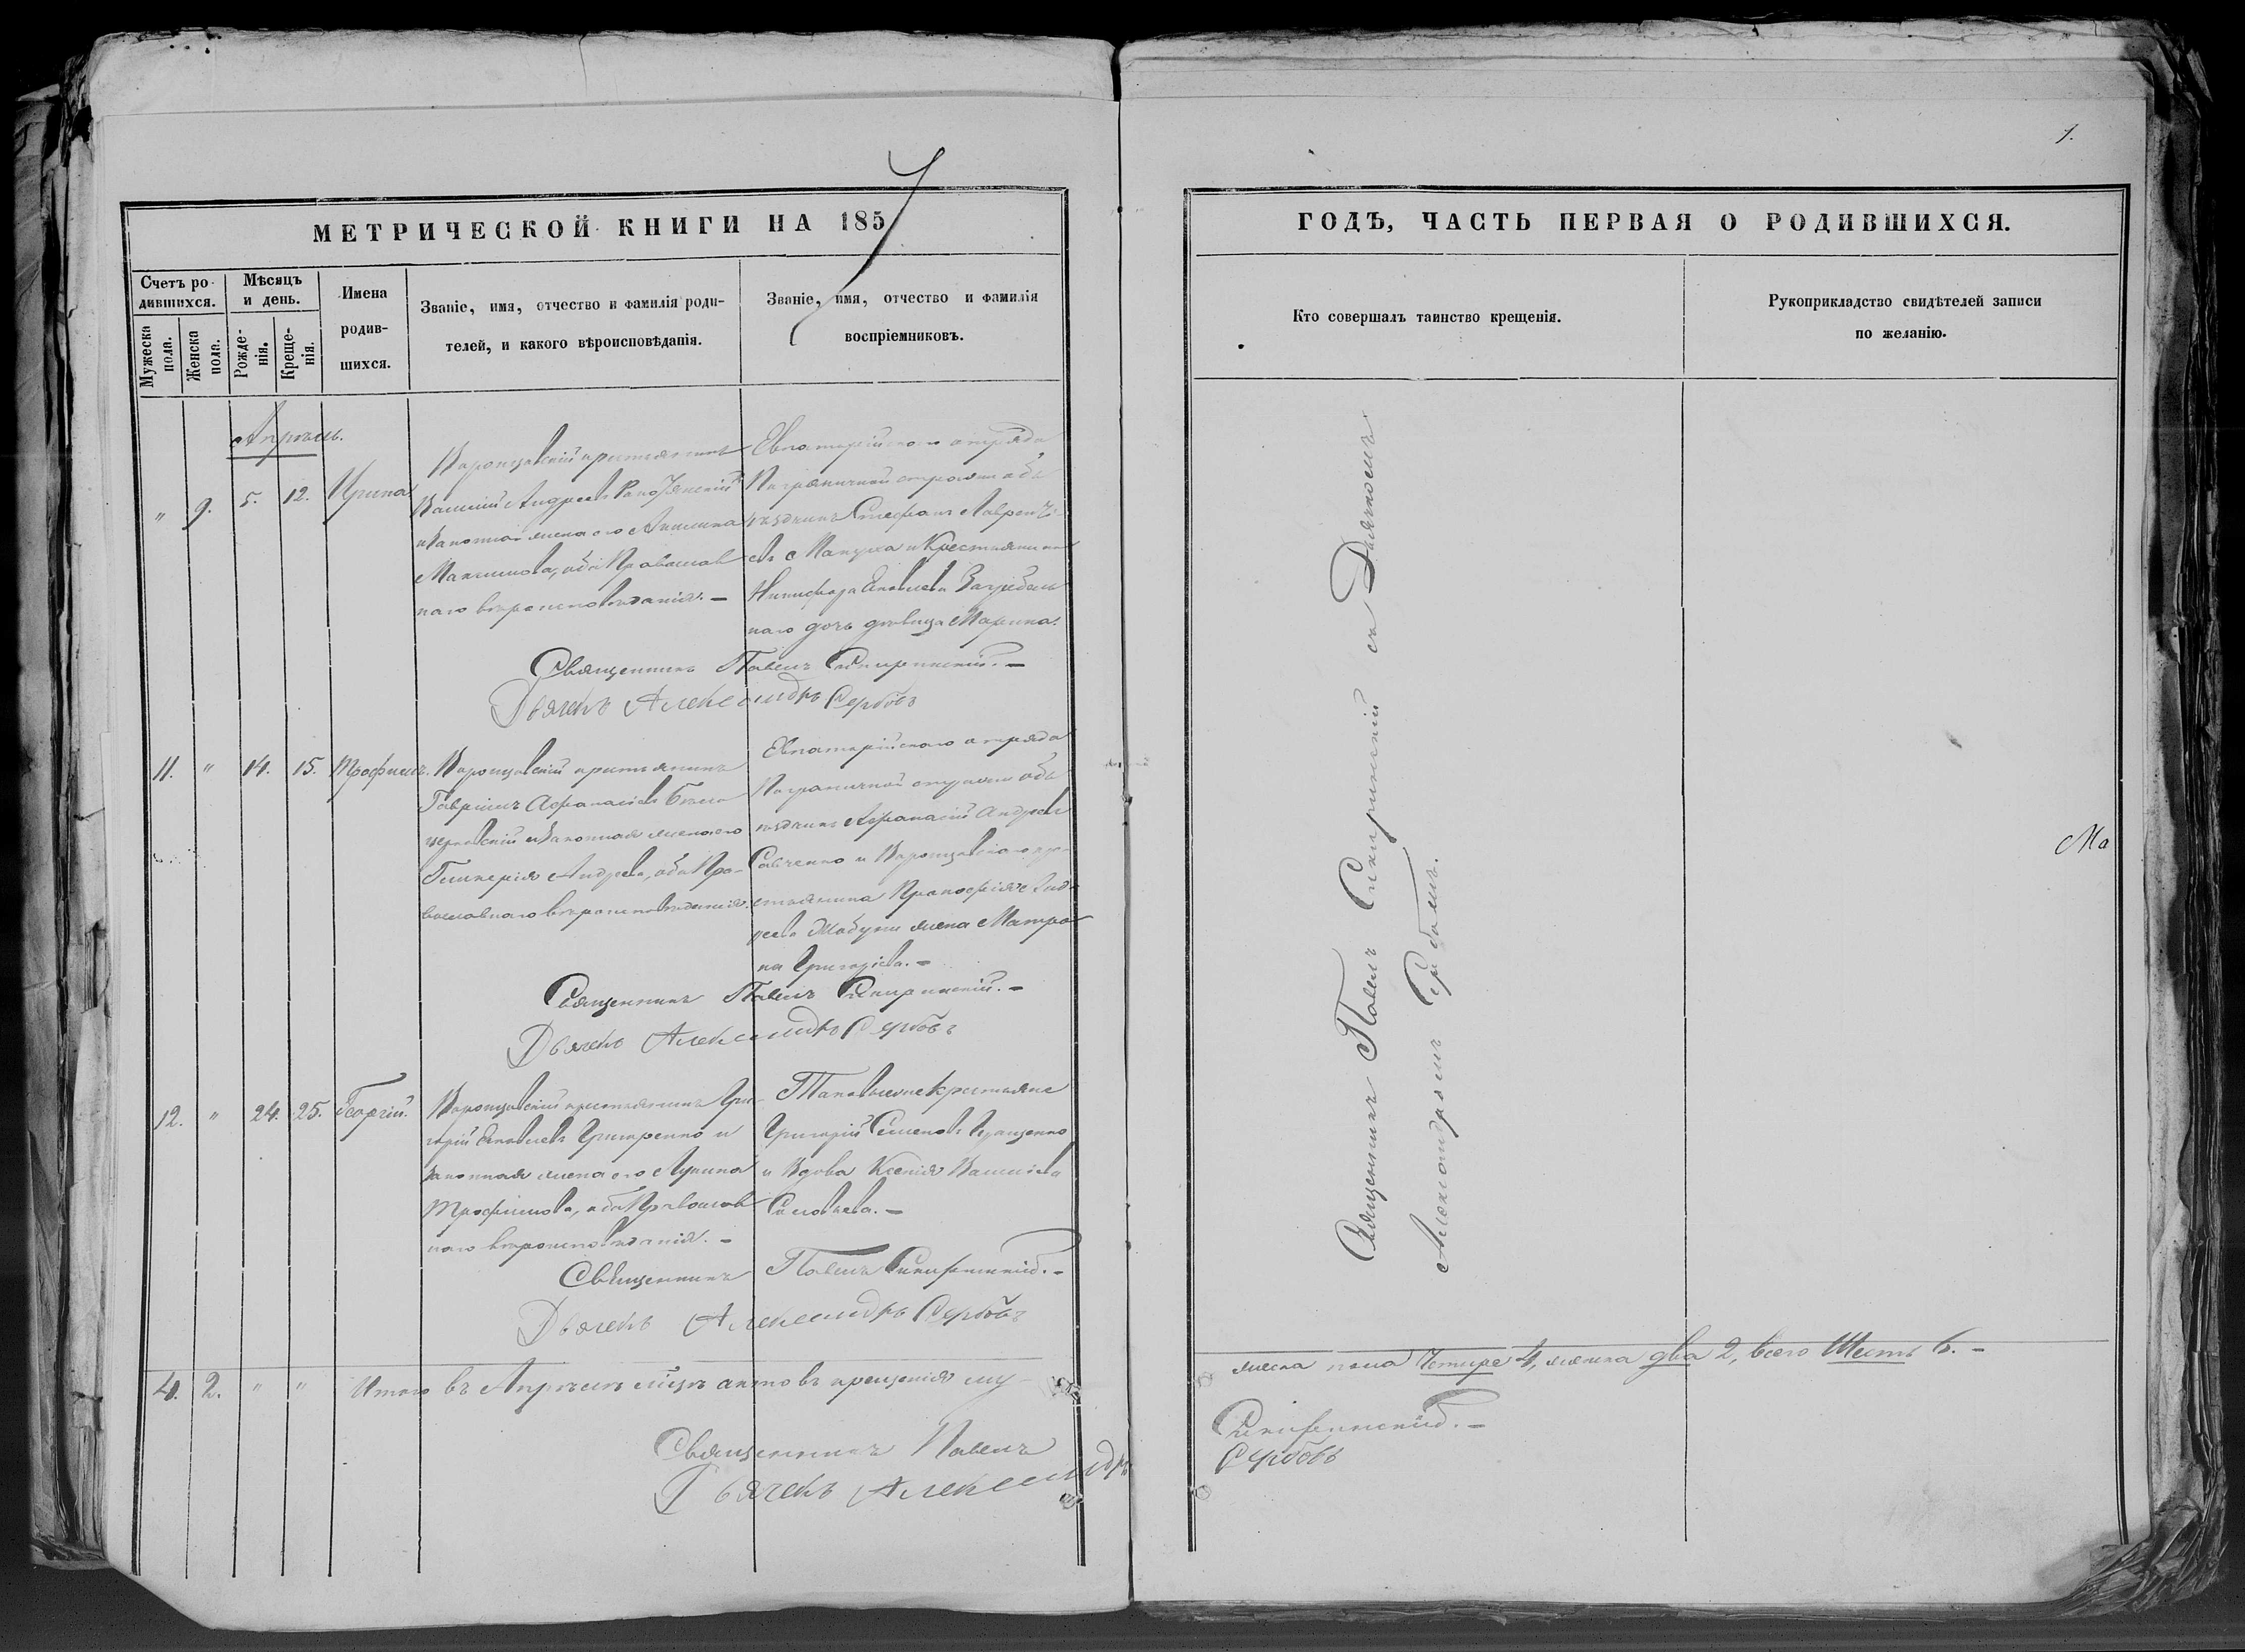 7
1.
МЕТРИЧЕСКОЙ КНИГИ НА 1857
ГОДЪ, ЧАСТЬ ПЕРВАЯ О РОДИВШИХСЯ.
Счетъ ро-
дившихся.
Мужеска
пола.
Женска
пола.
Мѣсяцъ
и день.
Рожде-
нія.
Креще-
нія.
Имена
родив-
шихся.
Званіе, имя, отчество и фамилія роди-
телей, и какого вѣроисповѣданія.
Званіе, имя, отчество и фамилія
воспріемниковъ.
Кто совершалъ таинство крещенія.
Рукоприкладство свидѣтелей записи
по желанію.
Апрѣль.
" 9. 5. 12. Ирина
Воронцовскій крестьянинъ
Василій Андреевъ
и Законная жена его Акилина
Максимова, оба Православ
наго вѣроисповѣданія. —
Евпаторійского отряда
Пограничной стражи объ
ѣздчикъ Стефанъ Лаврентi
евъ Мануха и Крестьянина
Никифора Яковлева Загребель
наго дочь дѣвица Марина.
Священникъ Павелъ Скипринскій. —
Дьячекъ Александръ Сербовъ
11. " 14. 15. Трофимъ.
Воронцовскій крестьянинъ
Гавріилъ Афанасіевъ Бѣло
церковскій и Законная жена его
Гликерія Андреева, оба Пра-
вославнаго вѣроисповѣданія.
Евпаторійскаго отряда
Пограничной стражи объ
ѣздчикъ Афанасій Андреевъ
Савченко и Воронцовскаго кре-
стьянина Прокофія Анд-
реева жена Матро
на Григоріева. —
Священникъ Павелъ Скипринскій. —
Дьячекъ Александръ Сербовъ
12. " 24. 25. Георгій.
Воронцовскій крестьянинъ Гри-
горій Яковлевъ и
Законная жена его Лукина
Трофимова, оба Православ
наго вѣроисповѣданія. —
Таковыеже крестьяне
Григорій Семеновъ
и Вдова Ксенія Василіева
Соловьева. —
Священникъ Павелъ Скипринскій. —
Дьячекъ Александръ Сербовъ
4. 2. " " Итого въ Апрѣлѣ мѣцѣ актовъ крещенія му-
жеска пола Четыре 4, женска два 2, всего Шесть 6. —
Священникъ Павелъ Скипринскій. —
Дьячекъ Александръ Сербовъ
Священникъ Павелъ Скипринскій съ Дьячкомъ
Александромъ Сербовымъ.
Ма